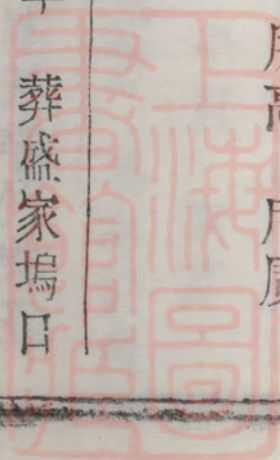 葬盛家塢口
上海圖
書館藏